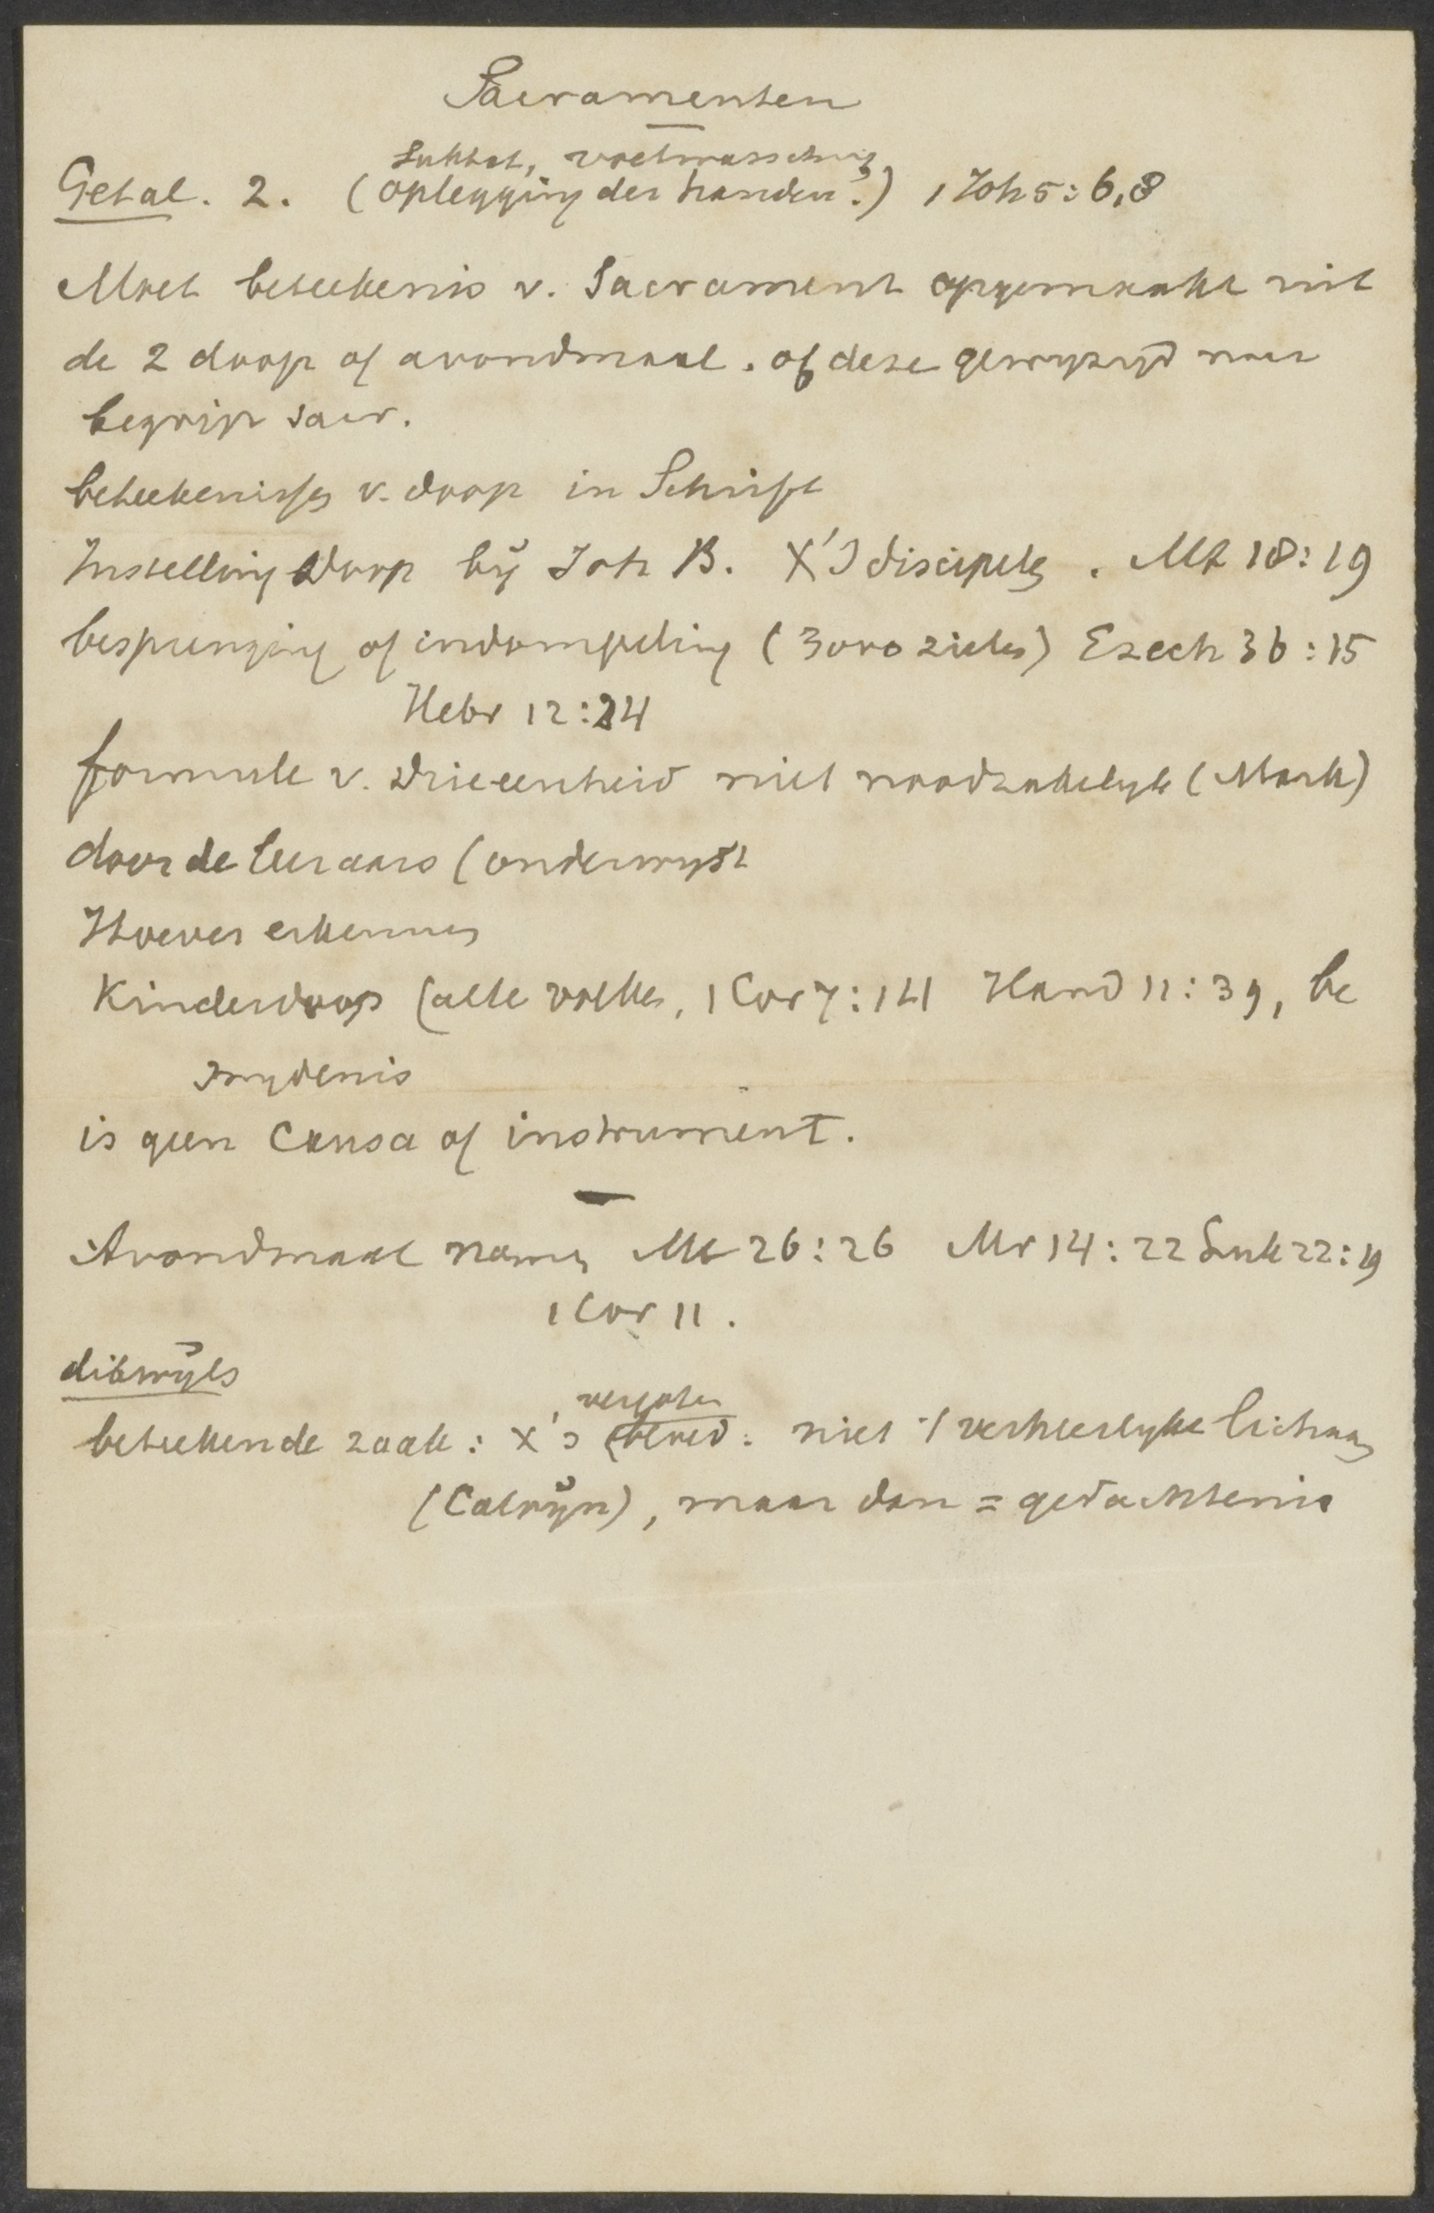 Sacramenten
Sabbat, voetwassching
Getal. 2. (oplegging der handen?) 1 Joh 5:6,8
Moet beteekenis v. Sacrament opgemaakt uit
de 2 doop of avondmaal. of deze gewyzigd naar
begrip sacr.
beteekenissen v. doop in Schrift
Instelling Doop bÿ Joh B. X's discipelen. Mt 18:19
besprenging of indompeling (3000 zielen) Ezech 36:15
Hebr 12:24
formule v. Drieeenheid niet noodzakelyk (Mark)
door de leeraars (onderwyst
Hoever erkennen
Kinderdoop (alle volken, 1 Cor 7:14 Hand 11:39, be
snydenis
is geen Causa of instrument.
Avondmaal namen Mt 26:26 Mr 14:22 Luk 22:19
1 Cor 11.
dikwÿls
vergoten
beteekende zaak: X's bloed. niet 't verheerlykte lichaam
(Calvÿn), maar dan = gedachtenis